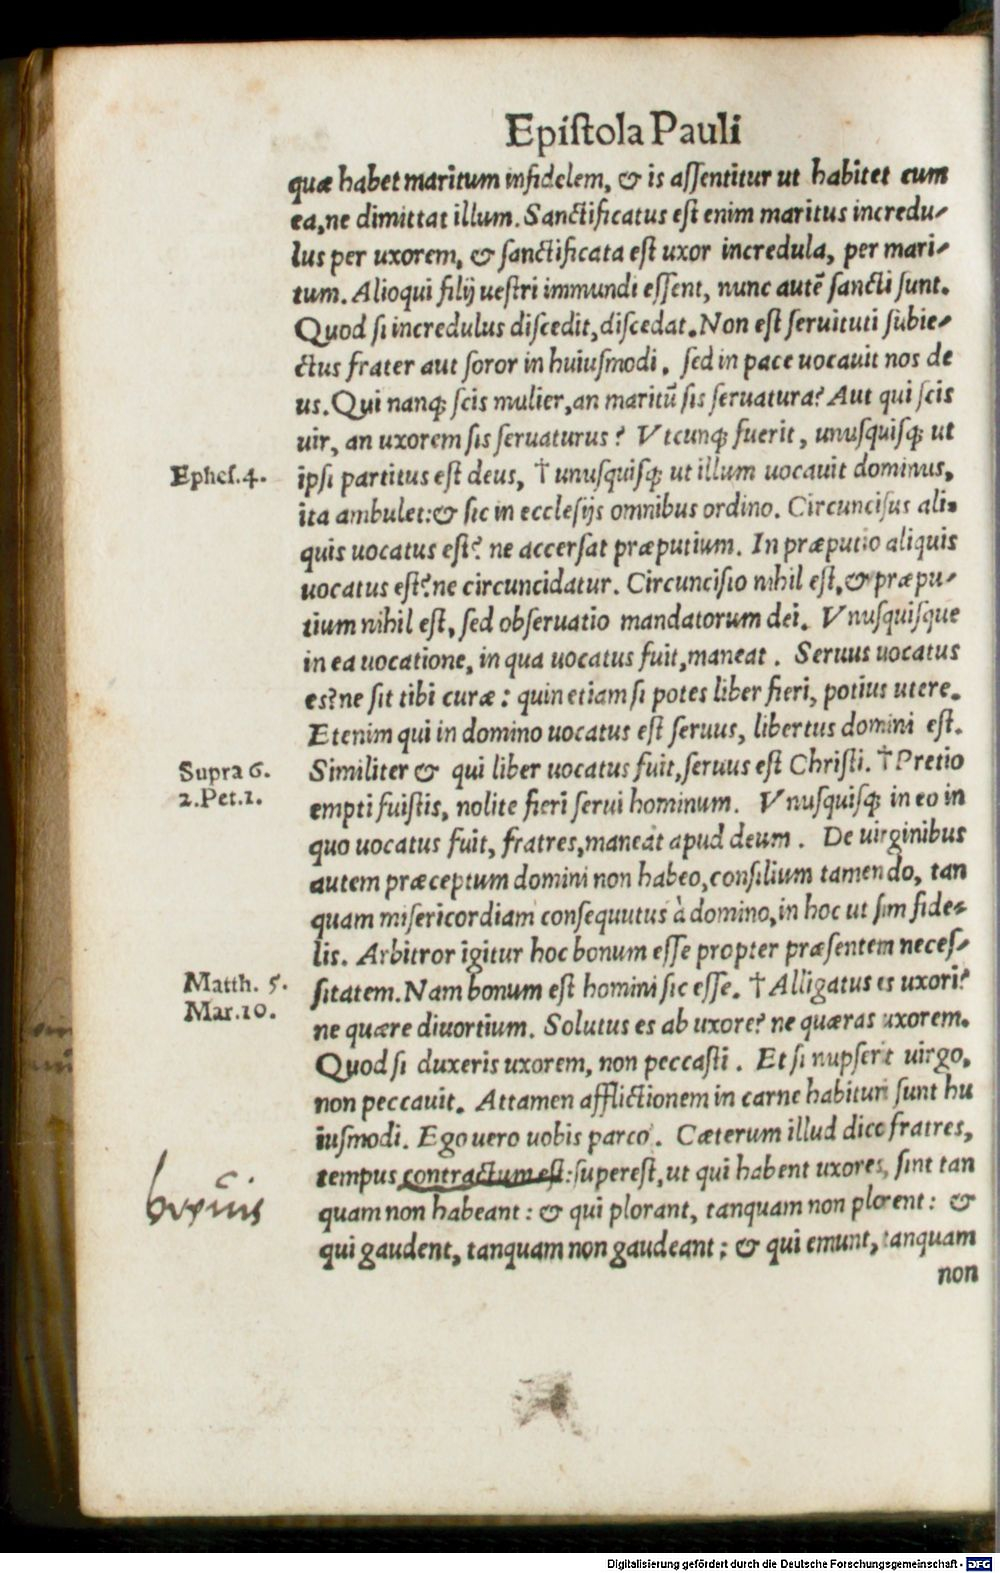 Epiſtola Pauli
quæ habet maritum infidelem, & is aſſentitur ut habitet cum
ea, ne dimittat illum. Sanctificatus eſt enim maritus incredu-
lus per uxorem, & ſanctificata eſt uxor incredula, per mari-
tum. Alioqui filij ueſtri immundi eſſent, nunc autẽ ſancti ſunt.
Quod ſi incredulus diſcedit, diſcedat. Non eſt ſeruituti ſubie-
ctus frater aut ſoror in huiuſmodi, ſed in pace uocauit nos de
us. Qui nanqꝫ ſcis mulier, an maritũ ſis ſeruatura? Aut qui ſcis
uir, an uxorem ſis ſeruaturus? Vtcunqꝫ fuerit, unuſquiſqꝫ ut
Epheſ. 4.
ipſi partitus eſt deus, † unuſquiſqꝫ ut illum uocauit dominus,
ita ambulet: & ſic in eccleſijs omnibus ordino. Circunciſus ali-
quis uocatus eſt? ne accerſat præputium. In præputio aliquis
uocatus eſt? ne circuncidatur. Circunciſio nihil eſt, & præpu-
tium nihil eſt, ſed obſeruatio mandatorum dei. Vnuſquiſque
in ea uocatione, in qua uocatus fuit, maneat. Seruus uocatus
es? ne ſit tibi curæ: quin etiam ſi potes liber fieri, potius utere.
Etenim qui in domino uocatus eſt ſeruus, libertus domini eſt.
Supra 6.
Similiter & qui liber uocatus fuit, ſeruus eſt Chriſti. † Pretio
2. Pet. 1.
empti fuiſtis, nolite fieri ſerui hominum. Vnuſquiſqꝫ in eo in
quo uocatus fuit, fratres, maneat apud deum. De uirginibus
autem præceptum domini non habeo, conſilium tamen do, tan
quam miſericordiam conſequutus à domino, in hoc ut ſim fide-
lis. Arbitror igitur hoc bonum eſſe propter præſentem neceſ-
Matth. 5.
ſitatem. Nam bonum eſt homini ſic eſſe. † Alligatus es uxori?
Mar. 10.
ne quære diuortium. Solutus es ab uxore? ne quæras uxorem.
Quod ſi duxeris uxorem, non peccaſti. Et ſi nupſerit uirgo,
non peccauit. Attamen afflictionem in carne habituri ſunt hu
iuſmodi. Ego uero uobis parco. Cæterum illud dico fratres,
tempus contractum eſt: ſupereſt, ut qui habent uxores, ſint tan
quam non habeant: & qui plorant, tanquam non plorent: &
qui gaudent, tanquam non gaudeant: & qui emunt, tanquam
non
Digitalisierung gefördert durch die Deutsche Forschungsgemeinschaft - DFG